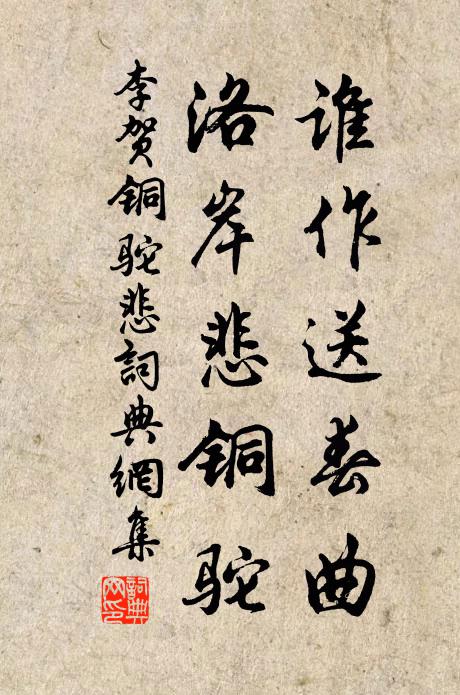 谁作送春曲
洛岸悲铜驼
李贺铜驼悲詞典網集
詞典
网印